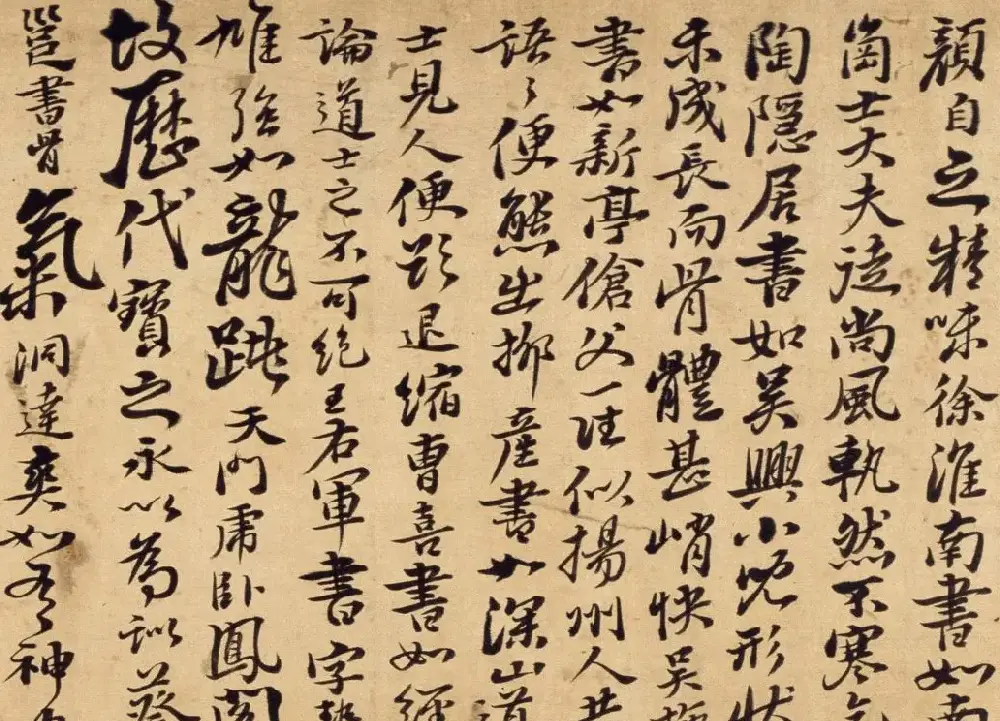 顏自乏精味徐淮南書如南
崗士大夫徒尚風軌然不寒乞
陶隱居書如吳興小兒形狀
未成長而骨體甚峭快吳施
書如新亭傖父一往似揚州人共
語々便態出柳産書如深山道
士見人便欲退縮曹喜書如經
論道士之不可絕王右軍書字勢
雄強如龍跳天門虎臥鳳閣
故歷代寶之永以為訓蔡
邕書骨氣洞達爽如有神